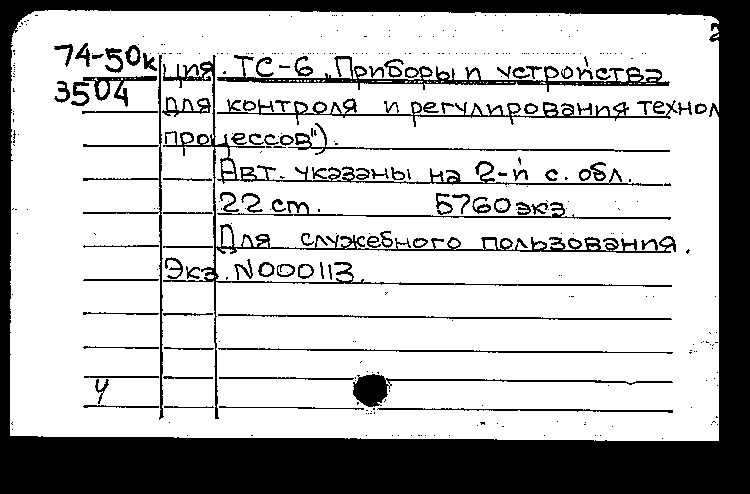 74-50к ция. ТС-6 „Приборы и устройства
3504 для контроля и регулирования технол
процессов").
Авт. указаны на 2-й с. обл.
22 ст. 5760 экз.
Для служебного пользования.
Экз. N000113.